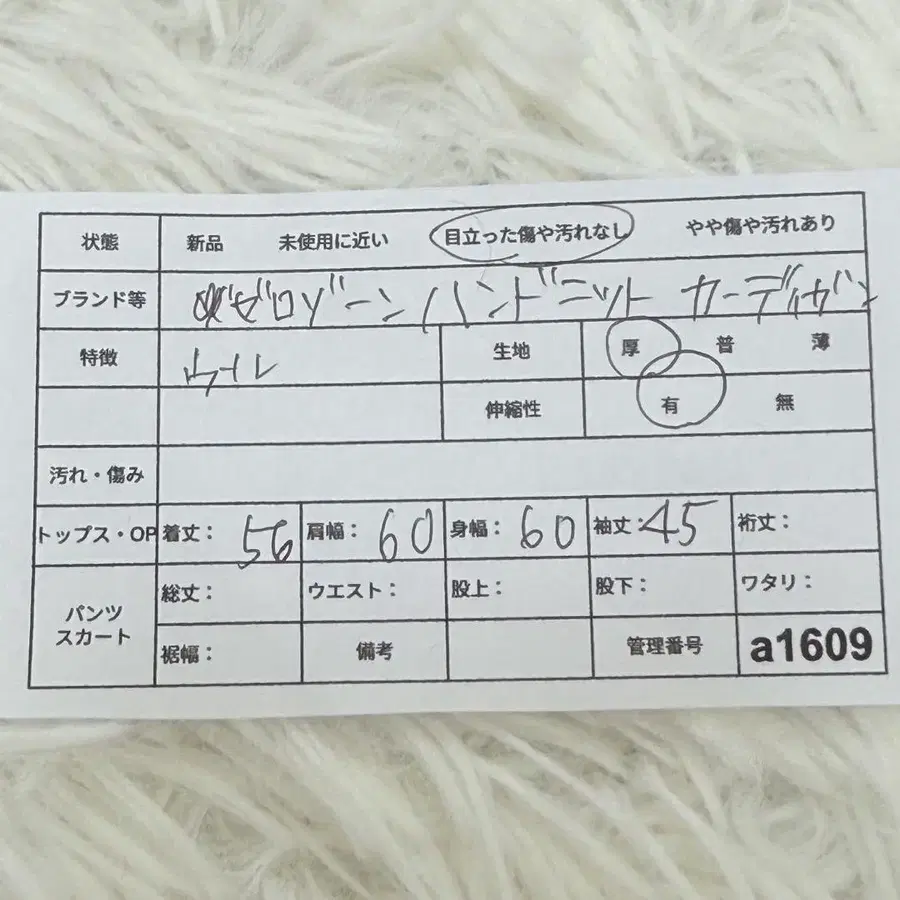 状態 新品 未使用に近い 目立った傷や汚れなし やや傷や汚れあり
ブランド等 ゼロゾーン ハンドニット カーディガン
特徴 ウール 生地 厚 普 薄
伸縮性 有 無
汚れ・傷み
トップス・OP 着丈: 56 肩幅: 60 身幅: 60 袖丈: 45 裄丈:
パンツ スカート 総丈: ウエスト: 股上: 股下: ワタリ:
裾幅: 備考 管理番号 a1609